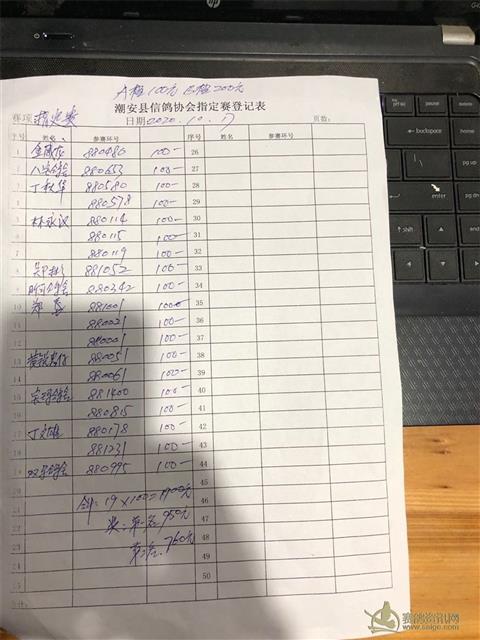 A组100元 B组200元
潮安县信鸽协会指定赛登记表
棚项:指定赛 日期2020.10.17 页数:
序号 姓名 参赛环号 序号 姓名 参赛环号
1 880480 100- 26
2 880653 100- 27
3 丁秋华 880580 100- 28
4 880578 100- 29
5 林永汉 880114 100- 30
6 880115 100- 31
7 880119 100- 32
8 郑彬 881052 100- 33
9 880342 100- 34
10 郑 881001 100- 35
11 880021 100- 36
12 880001 100- 37
13 880051 100- 38
14 880061 100- 39
15 881400 100- 40
16 880815 100- 41
17 丁文雄 880178 100- 42
18 881231 100- 43
19 880995 100- 44
20 45
21 19×100=1900元 46
22 奖:第一名950元 47
23 第二名760元 48
24 49
25 50
赛鸽资讯网
www.saige.com
backspace
enter
home
pg up
pg dn
end
shift